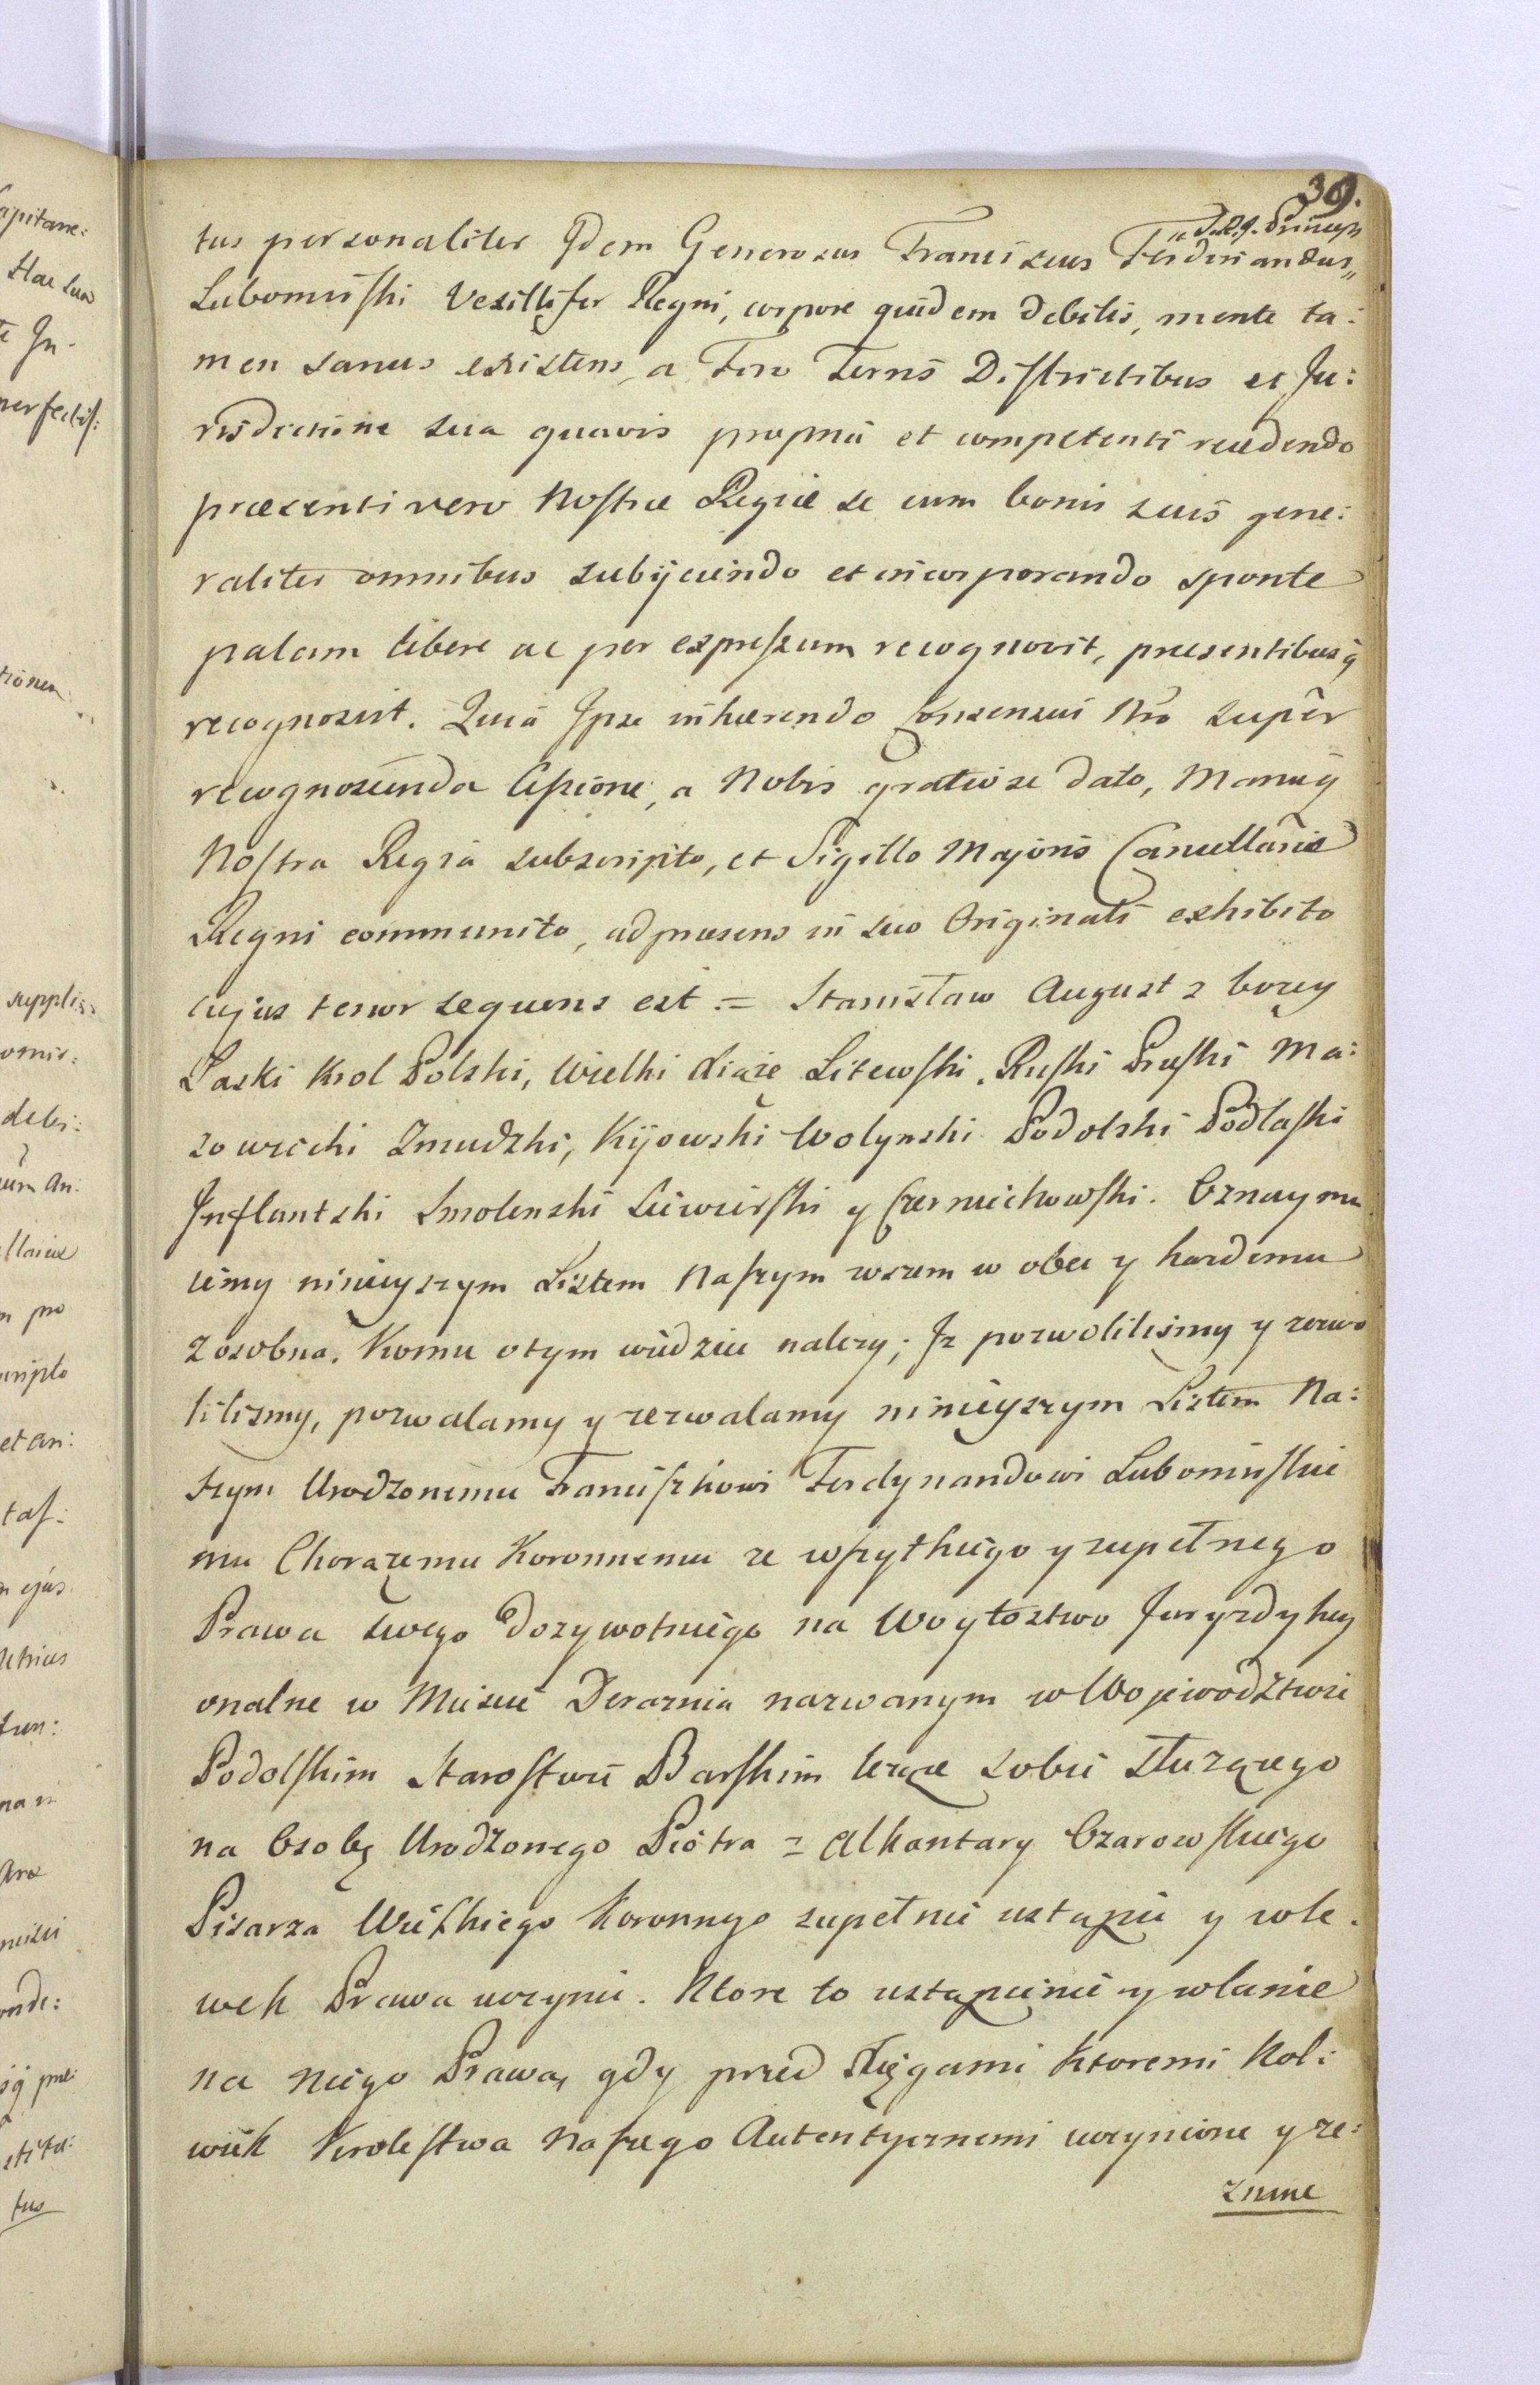 39.
S.R.J. Princeps
tus personaliter Idem Generosus Franciscus Ferdinandus„
Lubomirski Vexillifer Regni, corpore quidem debilis, mente ta:
men sanus existens, a Foro Terris Districtibus et Ju:
risdictione sua quavis propria et competenti recedendo
præsenti vero Nostræ Regiæ se cum bonis suis gene:
raliter omnibus subijciendo et incorporando sponte
palam libere ac per expressum recognovit, præsentibusq̨
recognoscit. Quia Ipse inhærendo Consensui Nro super
recognoscenda Cessione, a Nobis gratiose dato, Manuq̨
Nostra Regia subscripto, et Sigillo Majoris Cancellariæ
Regni communito, ad præsens in suo Originali exhibito
cujus tenor sequens est = Stanisław August z bożey
Łaski Krol Polski, Wielki Xiąże Litewski, Ruski Pruski Ma:
zowiecki Zmudzki, Kijowski Wolynski Podolski Podlaski
Inflantski Smolenski Siewierski y Czerniechowski. Oznaymu
iemy ninieyszym Listem Naszym wszem w obec y kazdemu
zosobna. Komu otym wiedziec nalezy; Iz pozwolilismy y zezwo
lilismy, pozwalamy y zezwalamy ninieyszym Listem Na:
szym Urodzonemu Franciszkowi Ferdynandowi Lubomirskie
mu Chorążemu Koronnemu ze wszytkiego y zupełnego
Prawa swego Dozywotniego na Woytostwo Juryzdykcy
onalne w Miescie Deraznia nazwanym w Wojewodztwie
Podolskim Starostwie Barskim lezące sobie służącego
na Osobę Urodzonego Piotra = Alkantary Ożarowskiego
Pisarza Wielkiego Koronnego zupełnie ustąpic y wle.
wek Prawa uczynic. Ktore to ustąpienie y wlanie
na niego Prawa, gdy przed Xięgami Ktoremi Kol:
wiek Krolestwa Naszego Autentycznemi uczynione y ze:
znane